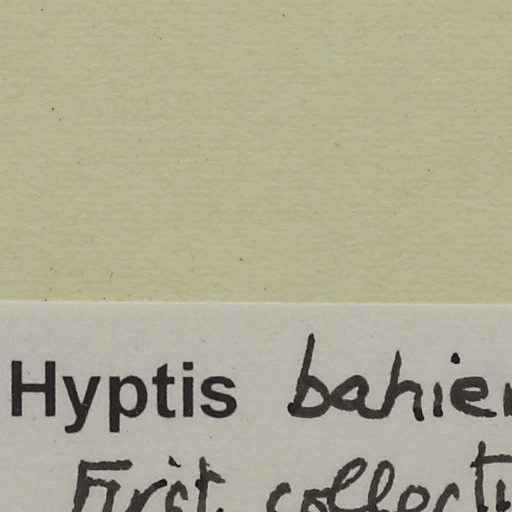 Hyptis bahien
First collecti